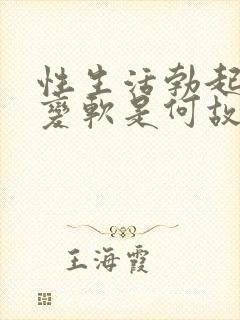 性生活勃起
变软是何故
王海霞